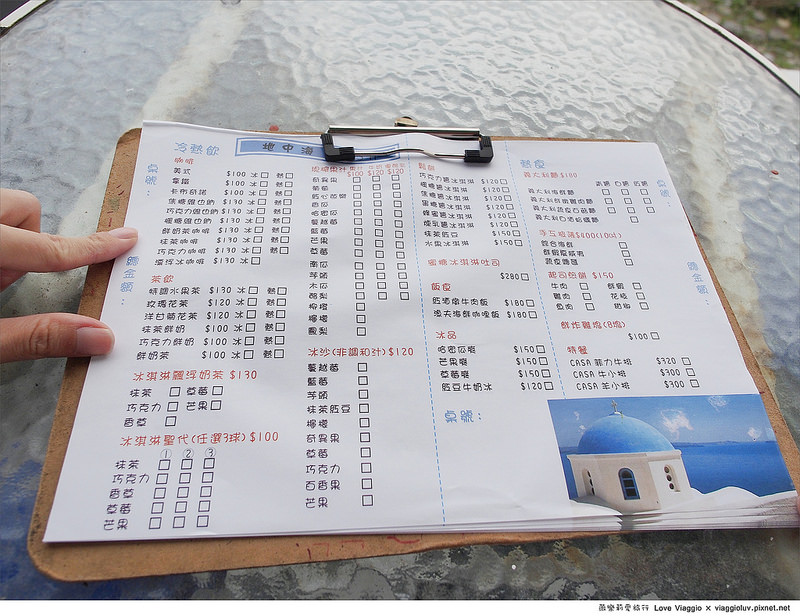 冷熱飲
地中海
咖啡
美式 $100 冰 熱
拿鐵 $100 冰 熱
卡布奇諾 $100 冰 熱
焦糖瑪奇朵 $130 冰 熱
$130 冰 熱
$130 冰 熱
鮮奶茶咖啡 $130 冰 熱
抹茶咖啡 $130 冰 熱
巧克力咖啡 $130 冰 熱
漂浮冰咖啡 $130 冰
茶飲
特調水果茶 $130 冰 熱
玫瑰花茶 $120 冰 熱
洋甘菊花茶 $120 冰 熱
抹茶鮮奶 $100 冰 熱
巧克力鮮奶 $100 冰 熱
鮮奶茶 $100 冰 熱
冰淇淋飄浮奶茶 $130
抹茶 草莓
巧克力 芒果
香草
冰淇淋聖代(任選3球) $100
① ② ③
抹茶
巧克力
香草
草莓
芒果
$100 $120 $120
奇異果
葡萄
西瓜
哈密瓜
蔓越莓
藍莓
芒果
草莓
南瓜
芋頭
木瓜
酪梨
柳橙
檸檬
鳳梨
冰沙(非調和汁) $120
蔓越莓
藍莓
芋頭
抹茶紅豆
檸檬
奇異果
草莓
巧克力
百香果
芒果
鬆餅
巧克力醬冰淇淋 $120
$120
焦糖醬冰淇淋 $120
蜜糖醬冰淇淋 $120
蜂蜜醬冰淇淋 $120
煉乳醬冰淇淋 $120
抹茶紅豆 $150
水果冰淇淋 $150
蜜糖冰淇淋吐司
$280
飯食
紅酒燉牛肉飯 $180
海味咖哩飯 $180
冰品
哈密瓜磚 $150
芒果磚 $150
草莓磚 $150
紅豆牛奶冰 $120
桌號:
熱食
義大利麵 $180
手工披薩 $400(10吋)
綜合海鮮
蔬食
起司煎餅 $150
牛肉 鮮蝦
雞肉 花枝
魚肉
鮮炸雞塊(8塊)
$100
特餐
CASA 菲力牛排 $320
CASA 牛小排 $300
CASA 羊小排 $300
桌號:
總金額:
桌號:
總金額:
薇樂莉愛旅行 Love Viaggio × viaggioluv.pixnet.net